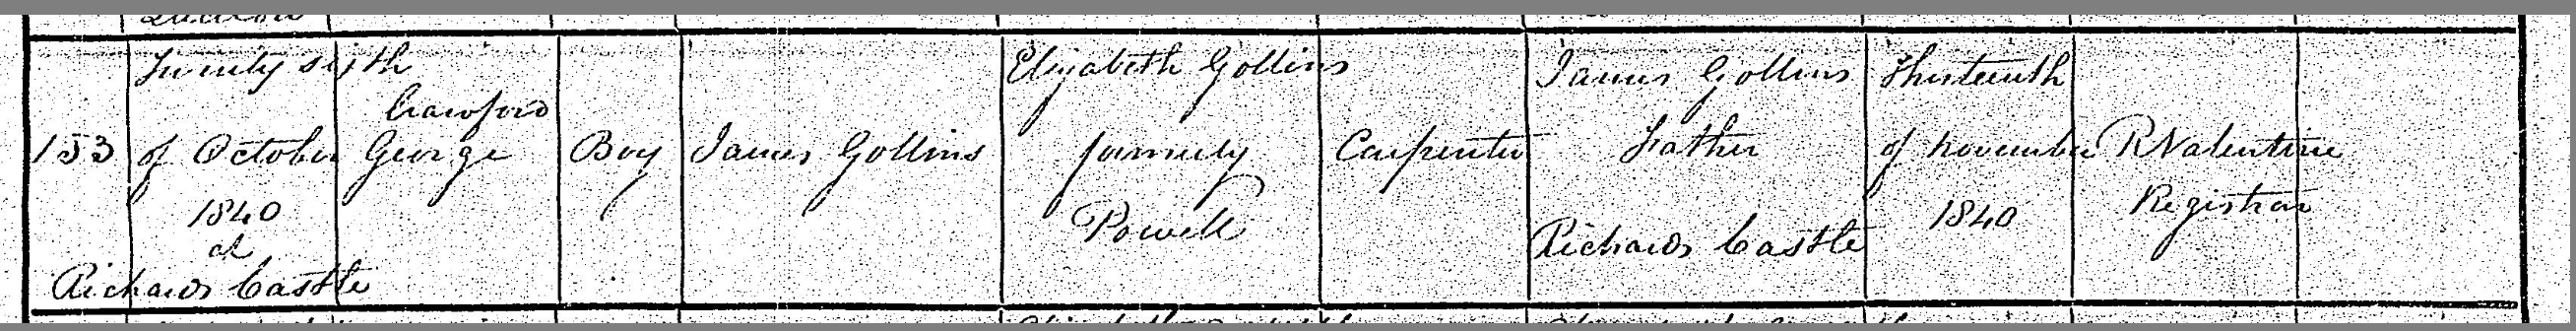 153
Twenty sixth
of October
1840
at
Richards Castle
Crawford
George
Boy
James Gollins
Elizabeth Gollins
formerly
Powell
Carpenter
James Gollins
Father
Richards Castle
Thirteenth
of November
1840
R Valentine
Registrar